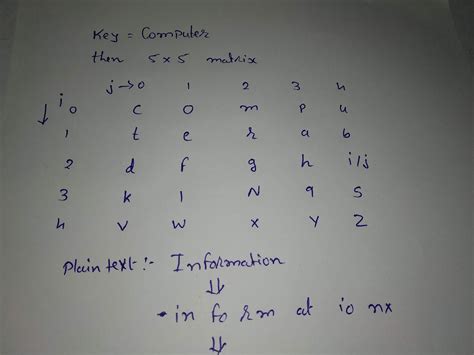 Key = Computer
then 5x5 matrix
j → 0 1 2 3 4
↓ i 0 C O m P u
1 t e r a b
2 d f g h i/j
3 k l N q S
4 V W X Y Z
Plain text :- Information
⇓
• in fo rm at io nx
⇓